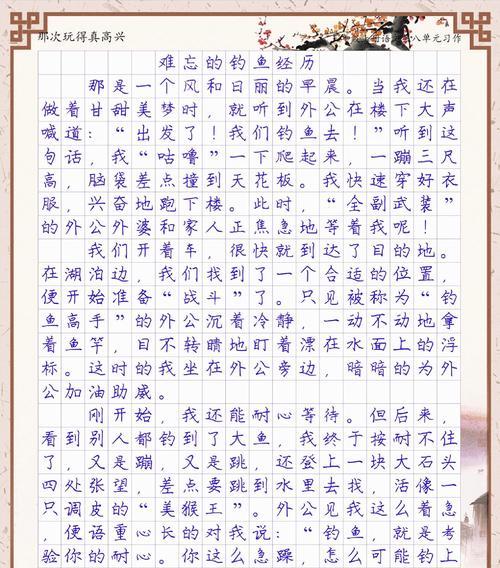 那次玩得真高兴
语 八单元习作
难忘的钓鱼经历
那是一个风和日丽的早晨。当我还在
做着甘甜美梦时，就听到外公在楼下大声
喊道：“出发了！我们钓鱼去！”听到这
句话，我“咕噜”一下爬起来，一蹦三尺
高，脑袋差点撞到天花板。我快速穿好衣
服，兴奋地跑下楼。此时，“全副武装”
的外公外婆和家人正焦急地等着我呢！
我们开着车，很快就到达了目的地。
在湖泊边，我们找到了一个合适的位置，
便开始准备“战斗”了。只见被称为“钓
鱼高手”的外公沉着冷静，一动不动地拿
着鱼竿，目不转睛地盯着漂在水面上的浮
标。这时的我坐在外公旁边，暗暗的为外
公加油助威。
刚开始，我还能耐心等待。但后来，
看到别人都钓到了大鱼，我终于按耐不住
了，又是蹦，又是跳，还登上一块大石头
四处张望，差点要跳到水里去找，活像一
只调皮的“美猴王”。外公见我这么着急，
便语重心长的对我说：“钓鱼，就是考
验你的耐心。你这么急躁，怎么可能钓上